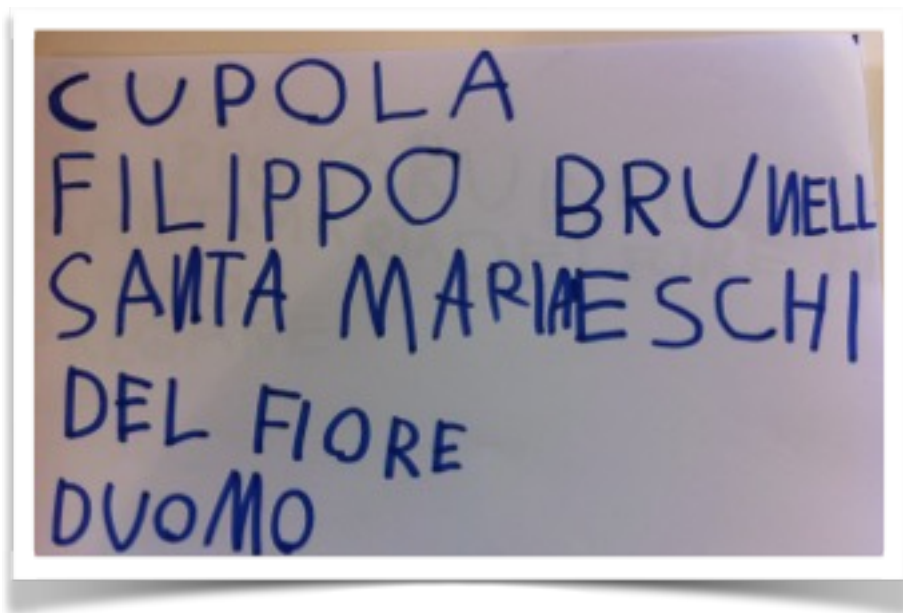 CUPOLA
FILIPPO BRUNELL
SANTA MARIA ESCHI
DEL FIORE
DUOMO